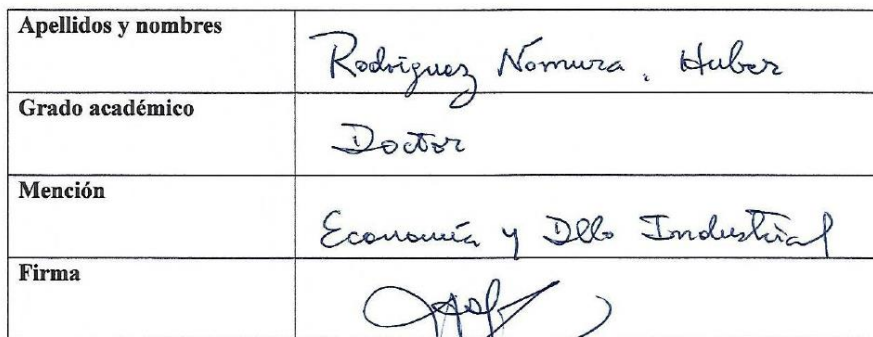 Apellidos y nombres
Rodríguez Nomura, Huber
Grado académico
Doctor
Mención
Economía y Dllo Industrial
Firma